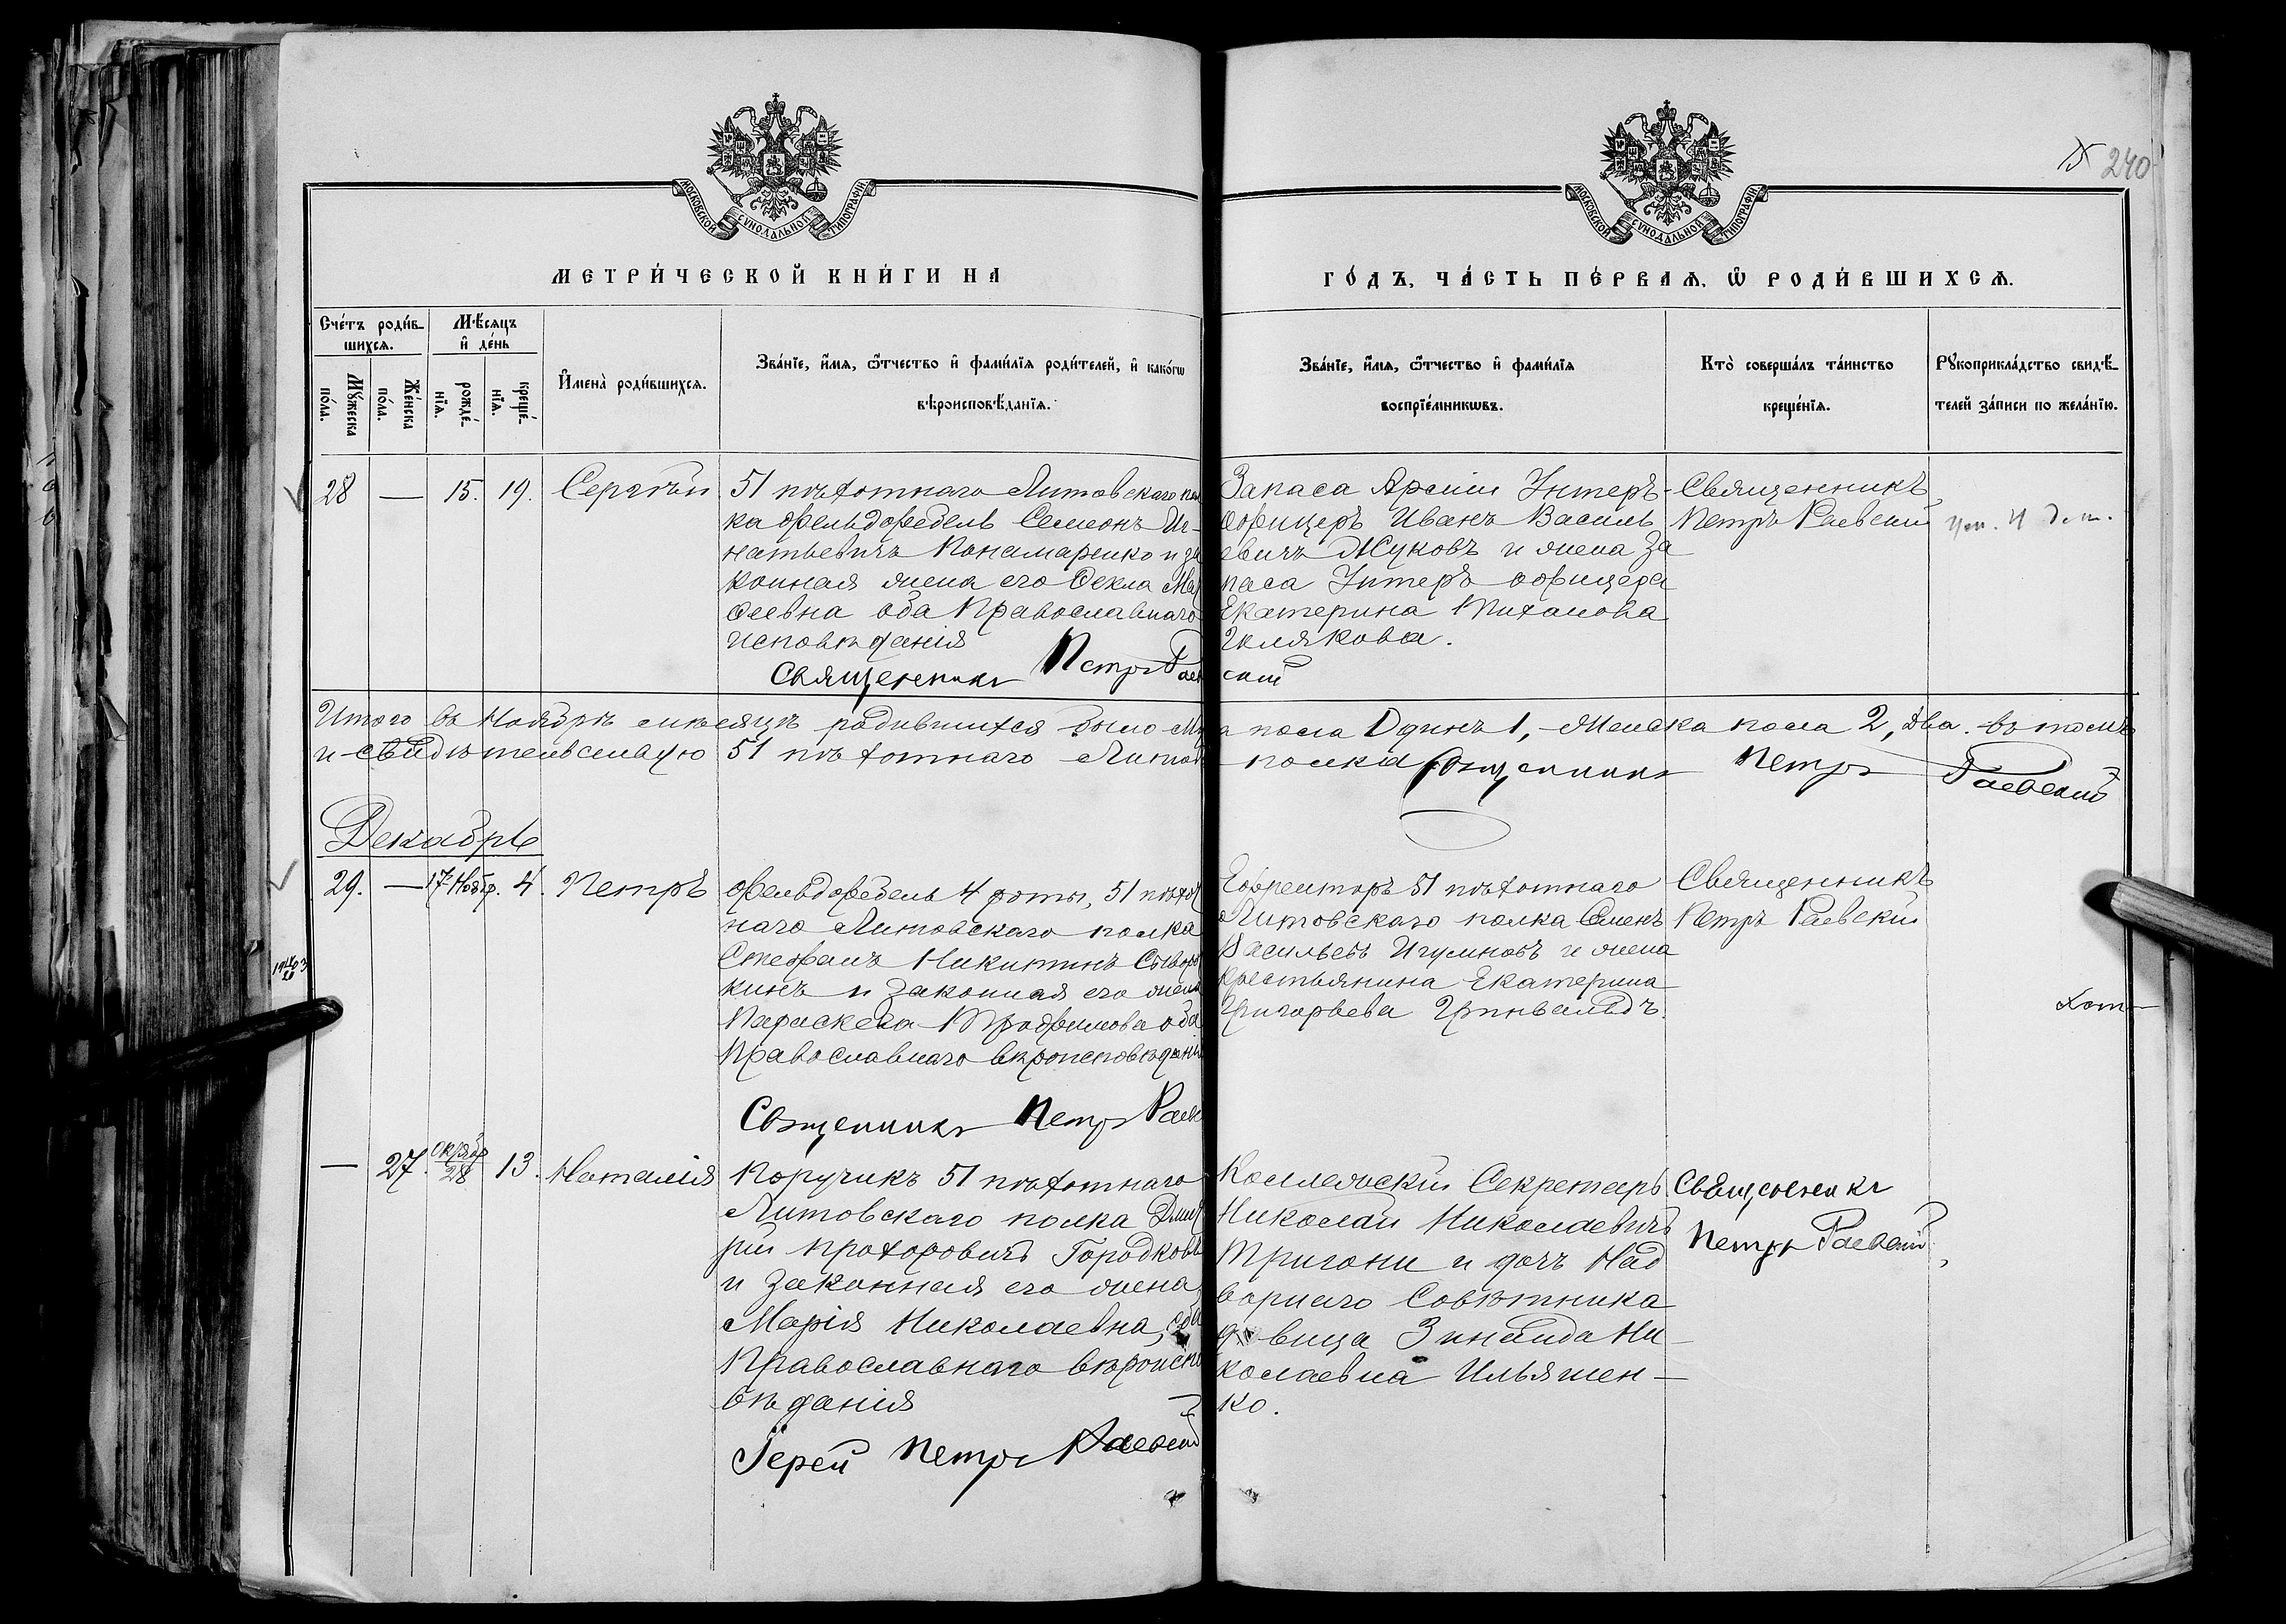 240
МОСКОВСКОЙ СѴНОДАЛЬНОЙ ТИПОГРАФІИ
МОСКОВСКОЙ СѴНОДАЛЬНОЙ ТИПОГРАФІИ
МЕТРИ́ЧЕСКОЙ КНИ́ГИ НА
ГО́ДЪ, ЧА́СТЬ ПЕ́РВАѦ, Ѡ҆ РОДИ́ВШИХСѦ.
Сче́тъ роди́в-
шихсѧ.
Мѣ́сѧцъ
и҆ де́нь
Мꙋ́жеска
по́ла.
Же́нска
по́ла.
рожде́-
нїѧ.
креще́-
нїѧ.
И҆мена̀ роди́вшихсѧ.
Зва́нїе, и҆́мѧ, ѻ҆́тчество и҆ фами́лїѧ роди́телей, и҆ како́гѡ
вѣроисповѣ́данїѧ.
Зва́нїе, и҆́мѧ, ѻ҆́тчество и҆ фами́лїѧ
воспрїе́мникѡвъ.
Кто̀ соверша́лъ та́инство
креще́нїѧ.
Рꙋкоприкла́дство свидѣ́-
телей за́писи по жела́нїю.
28 — 15. 19. Сергѣй
51 пѣхотнаго Литовскаго пол
ка Фельдфебель Семеонъ Иг-
натьевичъ Понамаренко и за
конная жена его Ѳекла
ѳеевна оба Православнаго
исповѣданія
Священникъ Петръ Раев
Запаса Арміи Унтеръ-
офицеръ Иванъ Василь
евичъ Жуковъ и жена За
паса Унтеръ офицера
Екатерина
скій
Священникъ
Петръ Раевскій
Итого въ Ноябрѣ мѣсяцѣ родившихся было Му
а пола Одинъ 1, Женска пола 2, Два. въ томъ
и свидѣтельствую 51 пѣхотнаго Литов
полка Священникъ Петръ Раевскій
Декабрь
29. — 17 Нояб. 4. Петръ
Фельдфебель 4 роты, 51 пѣхот
наго Литовскаго полка
Стефанъ Никитинъ Сыворот
кинъ и законная его жена
Параскева Трофимова оба
Православнаго вѣроисповѣдані
Священникъ Петръ Раев
Ефрейторъ 51 пѣхотнаго
Литовскаго полка Семенъ
Васильевъ Игумновъ и жена
крестьянина Екатерина
Григорьева Гринвальдъ.
Священникъ
Петръ Раевскій
— 27. Октябр 28 13. Наталія
Поручикъ 51 пѣхотнаго
Литовскаго полка Дмит
рій Прохоровичъ Городковъ
и законная его жена
Марія Николаевна, оба
Православнаго вѣроиспо
вѣданія
Іерей Петръ Раевскій
Коллежскій Секретарь
Николай Николаевичъ
Тригони и дочь Над
ворнаго Совѣтника
девица Зинаида Ни-
колаевна Ильяшен-
ко.
Священникъ
Петръ Раевскій